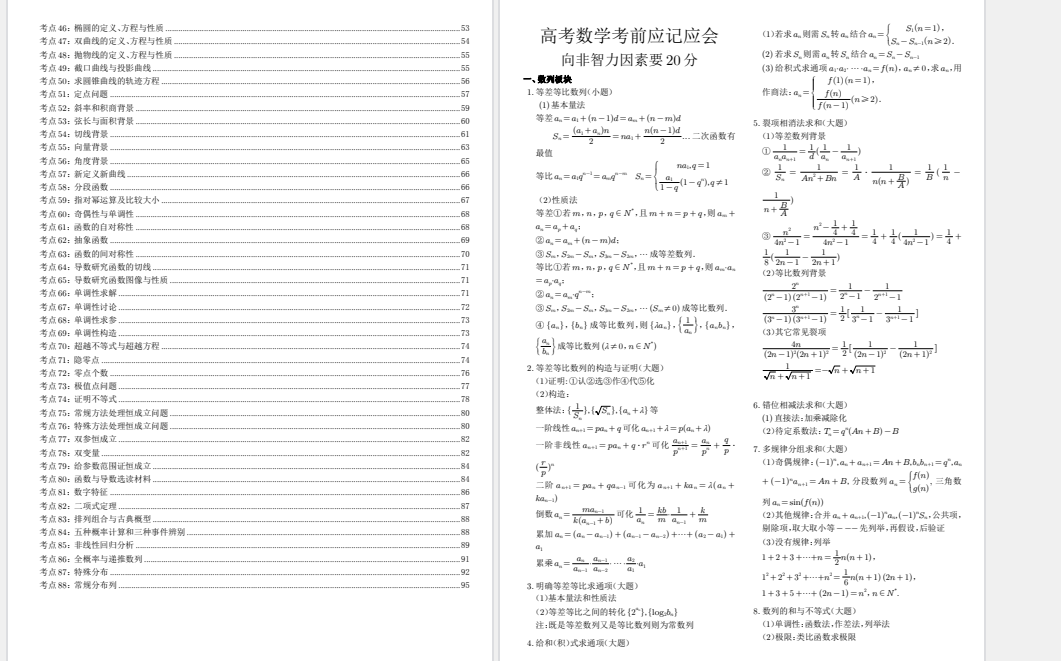 考点46：椭圆的定义、方程与性质 53
考点47：双曲线的定义、方程与性质 54
考点48：抛物线的定义、方程与性质 55
考点49：截口曲线与投影曲线 55
考点50：求圆锥曲线的轨迹方程 56
考点51：定点问题 57
考点52：斜率和积商背景 59
考点53：弦长与面积背景 60
考点54：切线背景 61
考点55：向量背景 63
考点56：角度背景 65
考点57：新定义新曲线 66
考点58：分段函数 66
考点59：指对幂运算及比较大小 67
考点60：奇偶性与单调性 68
考点61：函数的自对称性 68
考点62：抽象函数 69
考点63：函数的间对称性 70
考点64：导数研究函数的切线 71
考点65：导数研究函数图像与性质 71
考点66：单调性求解 71
考点67：单调性讨论 72
考点68：单调性求参 73
考点69：单调性构造 73
考点70：超越不等式与超越方程 74
考点71：隐零点 74
考点72：零点个数 76
考点73：极值点问题 77
考点74：证明不等式 78
考点75：常规方法处理恒成立问题 80
考点76：特殊方法处理恒成立问题 80
考点77：双参恒成立 82
考点78：双变量 82
考点79：给参数范围证恒成立 84
考点80：函数与导数选读材料 84
考点81：数字特征 86
考点82：二项式定理 87
考点83：排列组合与古典概型 88
考点84：五种概率计算和三种事件辨别 88
考点85：非线性回归分析 89
考点86：全概率与递推数列 91
考点87：特殊分布 92
考点88：常规分布列 95
高考数学考前应记应会
向非智力因素要20分
一、数列板块
1. 等差等比数列(小题)
(1)基本量法
等差 aₙ=a₁+(n−1)d=aₘ+(n−m)d
Sₙ=(a₁+aₙ)n/2=na₁+n(n−1)d/2… 二次函数有
最值
等比 aₙ=a₁qⁿ⁻¹=aₘqⁿ⁻ᵐ Sₙ={na₁,q=1
a₁/(1−q)(1−qⁿ),q≠1
(2)性质法
等差①若 m, n, p, q∈N*,且 m+n=p+q,则 aₘ+
aₙ=aₚ+a_q;
②aₙ=aₘ+(n−m)d;
③Sₘ, S₂ₘ−Sₘ, S₃ₘ−S₂ₘ, ⋯ 成等差数列.
等比①若 m, n, p, q∈N*,且 m+n=p+q,则 aₘ·aₙ
=aₚ·a_q;
②aₙ=aₘ·qⁿ⁻ᵐ;
③Sₘ, S₂ₘ−Sₘ, S₃ₘ−S₂ₘ, ⋯ (Sₘ≠0)成比数列.
④{aₙ}, {bₙ}成等比数列,则{λaₙ}, {1/aₙ}, {aₙbₙ},
{aₙ/bₙ}成等比数列(λ≠0, n∈N*)
2. 等差等比数列的构造与证明(大题)
(1)证明:①认②选③作④代⑤化
(2)构造:
整体法:{1/Sₙ},{√Sₙ},{aₙ+λ}等
一阶线性 aₙ₊₁=paₙ+q 可化 aₙ₊₁+λ=p(aₙ+λ)
一阶非线性 aₙ₊₁=paₙ+q·rⁿ 可化 aₙ₊₁/pⁿ⁺¹=aₙ/pⁿ+q/p·
(r/p)ⁿ
二阶 aₙ₊₁=paₙ+qaₙ₋₁ 可化为 aₙ₊₁+kaₙ=λ(aₙ+
kaₙ₋₁)
倒数 aₙ=maₙ₋₁/k(aₙ₋₁+b) 可化 1/aₙ=kb/m·1/aₙ₋₁+k/m
累加 aₙ=(aₙ−aₙ₋₁)+(aₙ₋₁−aₙ₋₂)+⋯+(a₂−a₁)+
a₁
累乘 aₙ=aₙ/aₙ₋₁·aₙ₋₁/aₙ₋₂·⋯·a₂/a₁·a₁
3. 明确等差等比求通项(大题)
(1)基本量法和性质法
(2)等差等比之间的转化{2^aₙ},{log₂bₙ}
注:既是等差数列又是等比数列则为常数列
4. 给和(积)式求通项(大题)
(1)若求 aₙ 则需 Sₙ 转 aₙ 结合 aₙ={S₁(n=1),
Sₙ−Sₙ₋₁(n≥2).
(2)若求 Sₙ 则需 aₙ 转 Sₙ 结合 aₙ=Sₙ−Sₙ₋₁
(3)给积式求通项 a₁·a₂·⋯·aₙ=f(n), aₙ≠0,求 aₙ,用
作商法:aₙ={f(1)(n=1),
f(n)/f(n−1)(n≥2).
5. 裂项相消法求和(大题)
(1)等差数列背景
①1/aₙaₙ₊₁=1/d(1/aₙ−1/aₙ₊₁)
②1/Sₙ=1/(An²+Bn)=1/A·1/n(n+B/A)=1/B(1/n−
1/(n+B/A))
③n²/(4n²−1)=(n²−1/4+1/4)/(4n²−1)=1/4+1/4(1/(4n²−1))=1/4+
1/8(1/(2n−1)−1/(2n+1))
(2)等比数列背景
2ⁿ/(2ⁿ−1)(2ⁿ⁺¹−1)=1/(2ⁿ−1)−1/(2ⁿ⁺¹−1)
3ⁿ/(3ⁿ−1)(3ⁿ⁺¹−1)=1/2[1/(3ⁿ−1)−1/(3ⁿ⁺¹−1)]
(3)其它常见裂项
4n/(2n−1)²(2n+1)²=1/2[1/(2n−1)²−1/(2n+1)²]
1/(√n+√n+1)=−√n+√n+1
6. 错位相减法求和(大题)
(1)直接法:加乘减除化
(2)待定系数法:Tₙ=qⁿ(An+B)−B
7. 多规律分组求和(大题)
(1)奇偶规律:(−1)ⁿ,aₙ+aₙ₊₁=An+B,bₙbₙ₊₁=qⁿ,aₙ
+(−1)ⁿaₙ₊₁=An+B, 分段数列 aₙ={f(n)
g(n), 三角数
列 aₙ=sin(f(n))
(2)其他规律:合并 aₙ+aₙ₊₁,(−1)ⁿaₙ,(−1)ⁿSₙ,公共项,
剔除项,取大取小等−−−先列举,再假设,后验证
(3)没有规律:列举
1+2+3+⋯+n=1/2n(n+1),
1²+2²+3²+⋯+n²=1/6n(n+1)(2n+1),
1+3+5+⋯+(2n−1)=n², n∈N*.
8. 数列的和与不等式(大题)
(1)单调性:函数法,作差法,列举法
(2)极限:类比函数求极限